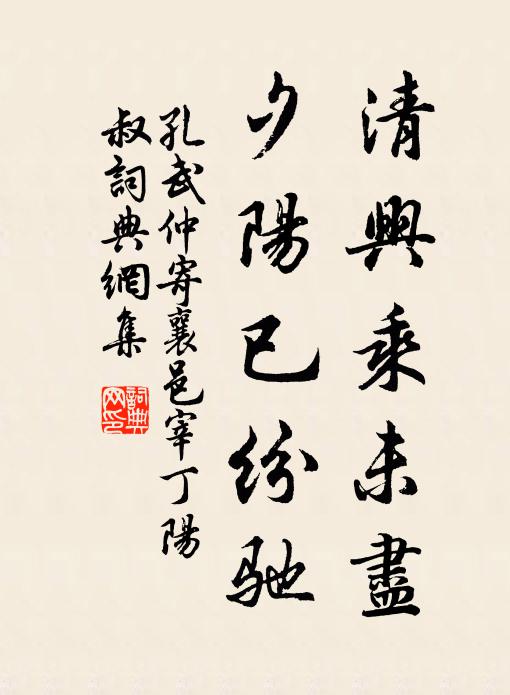 清興乘未盡
夕陽已紛馳
孔武仲寄襄邑宰丁陽
叔詞典網集
詞典
网印